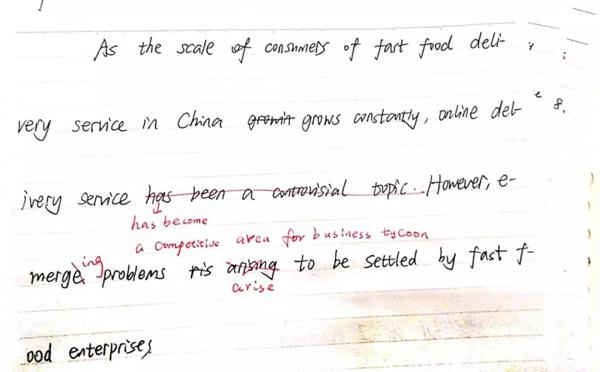 As the scale of consumers of fast food deli-
very service in China growin grows constantly, online del-
ivery service has been a controvisial tropic. However, e-
has become
a competitive area for business tycoon
merge ing problems ris arising to be settled by fast f-
arise
ood enterprises